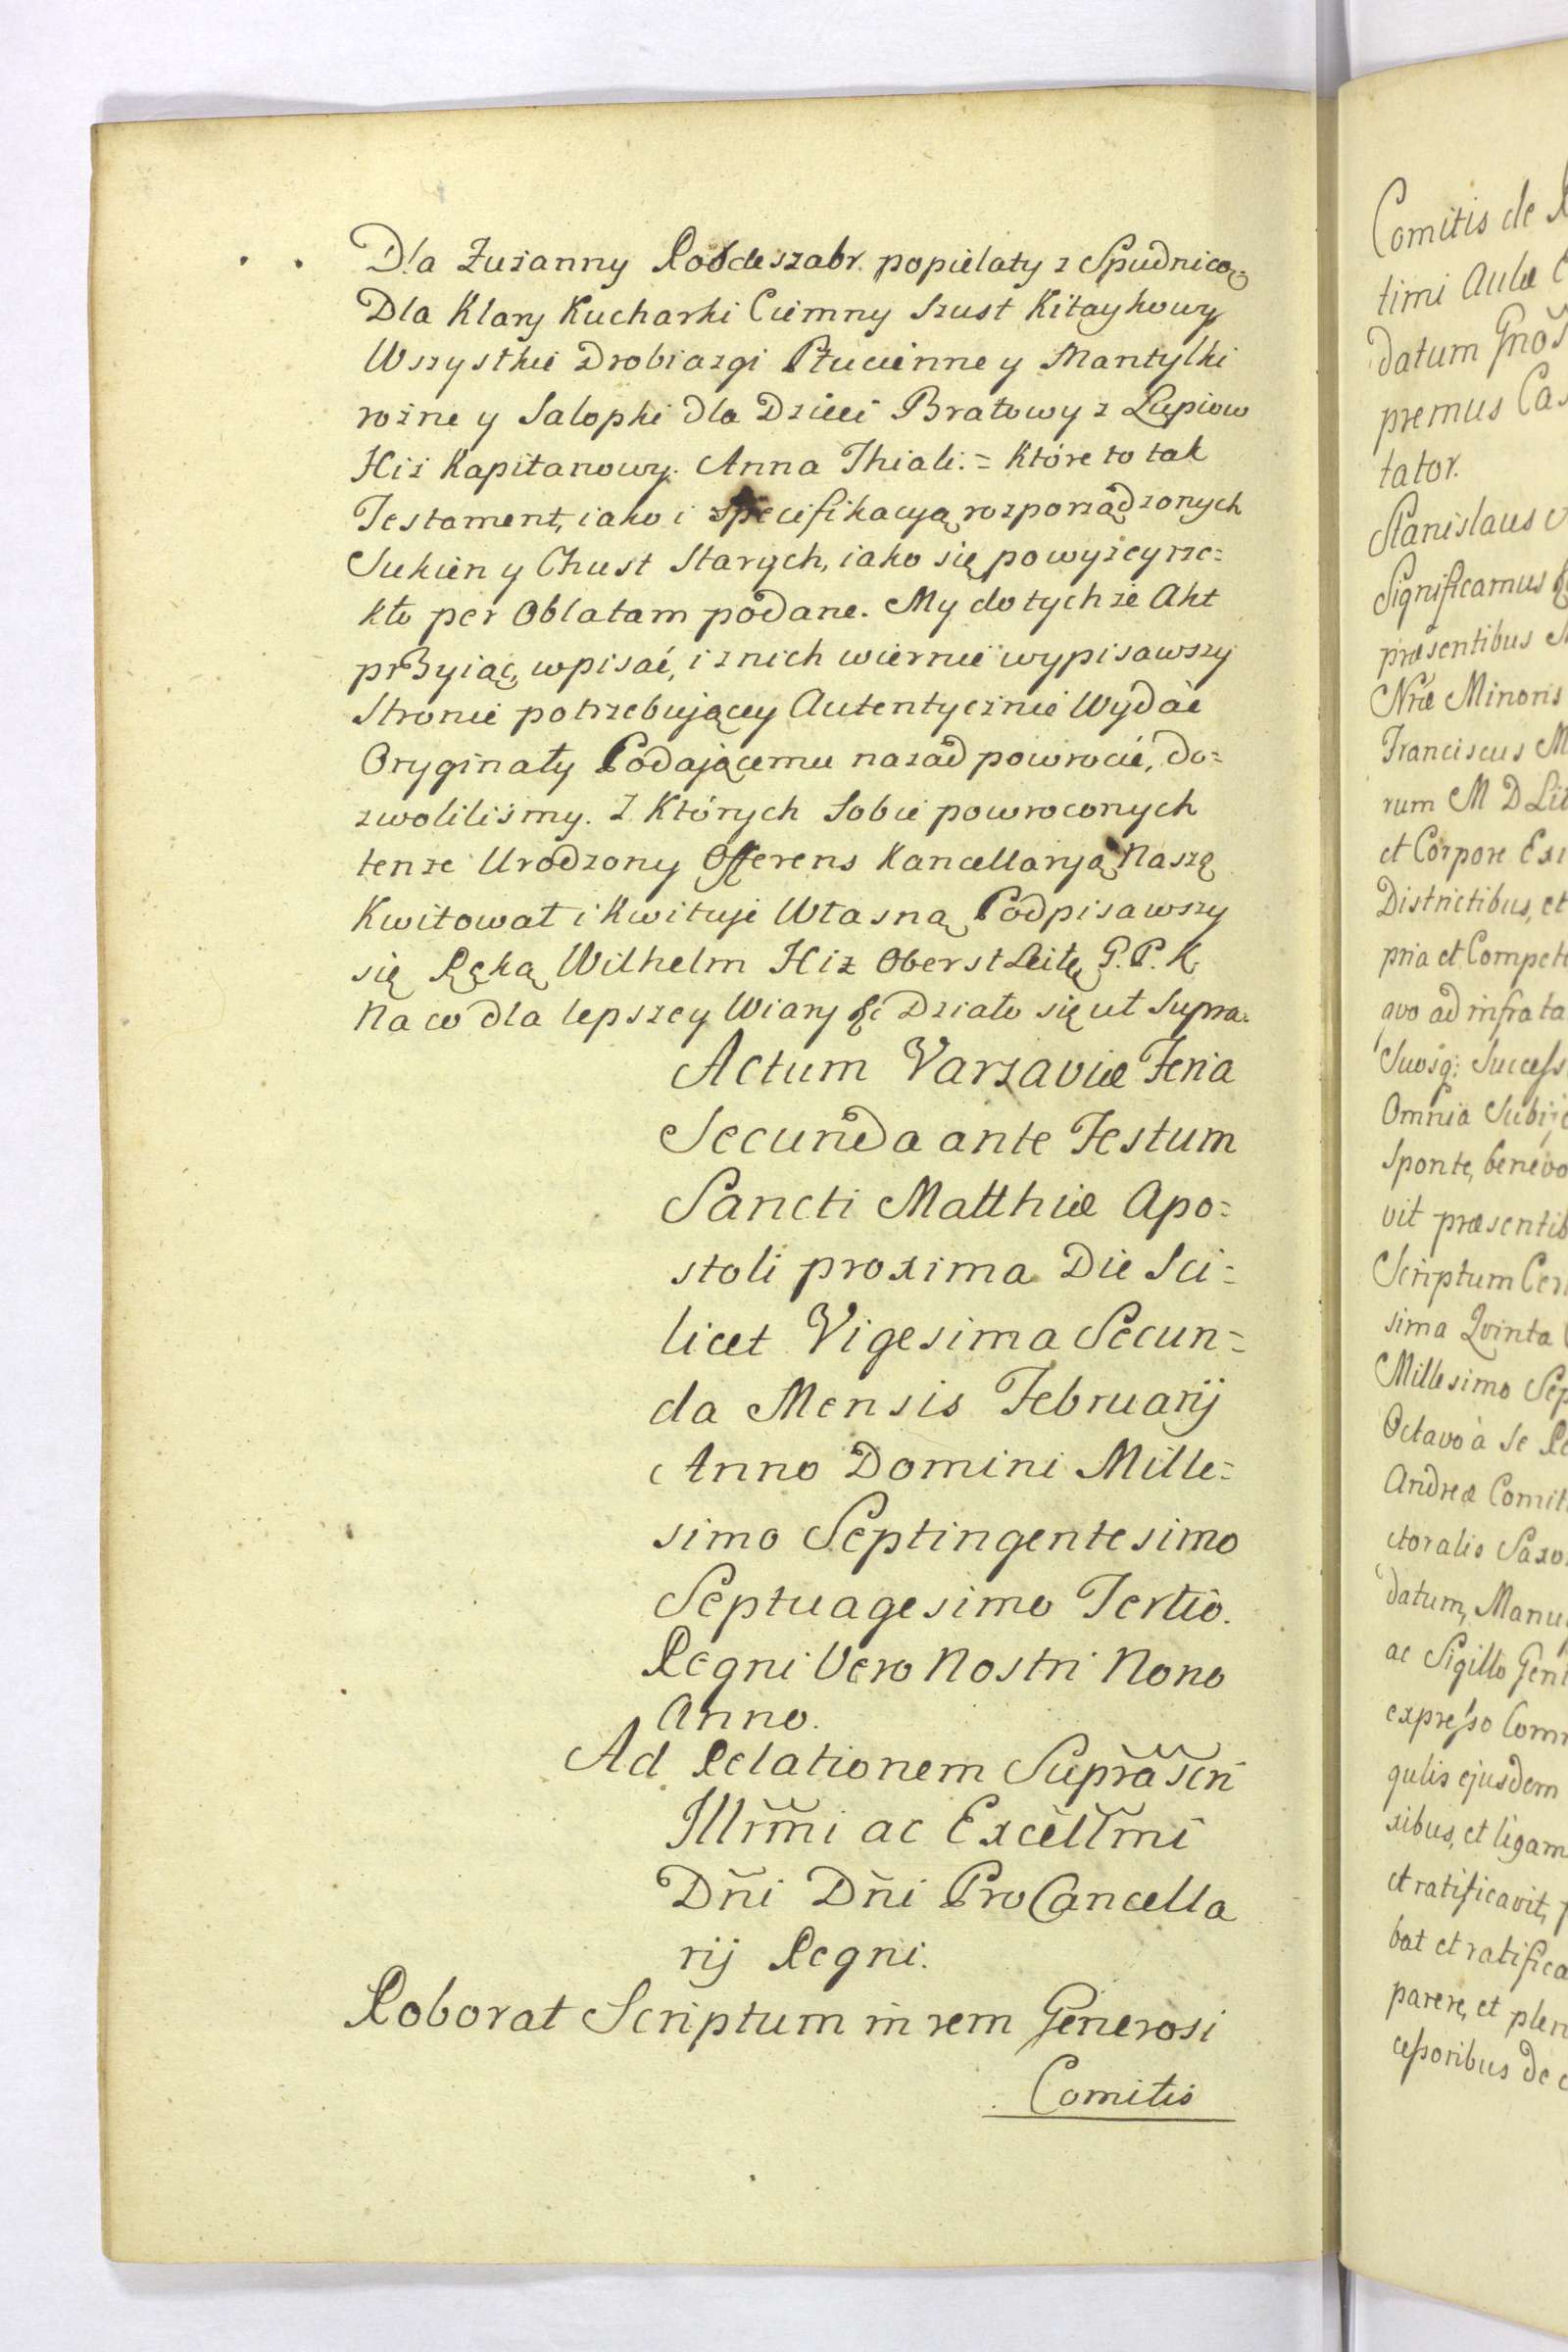 Dla Zuzanny Robdeszabr. popielaty z Spudnicą
Dla Klary Kucharki Ciemny Szust Kitaykowy
Wszystkie Drobiazgi Płucienne y Mantylki
rożne y Salopki dla Dzieci Bratowy z Lupiow
Hiż Kapitanowy. Anna Thiali. = Które to tak
Testament, iako i specifikacyą rozporządzonych
Sukien y Chust Starych, iako się powyżey rze=
kło per Oblatam podane. My do tychże Akt
przyiąć, wpisać, i z nich wiernie wypisawszy
Stronie potrzebującey Autentycznie Wydać
Oryginały Podającemu nazad powrocić, do=
zwoliliśmy. Z Których Sobie powroconych
tenże Urodzony Offerens Kancellaryą Naszą
Kwitował i Kwituje Własną Podpisawszy
się Ręką Wilhelm Hiż Oberst Leitę G. P. K.
Na co dla lepszey Wiary &c Działo się ut Supra.
Actum Varsaviæ Feria
Secunda ante Festum
Sancti Matthiæ Apo=
stoli proxima Die Sci=
licet Vigesima Secun=
da Mensis Februarij
Anno Domini Mille=
simo Septingentesimo
Septuagesimo Tertio.
Regni Vero Nostri Nono
Anno.
Ad Relationem Supra Scri
Illrmi ac Excellrmi
Dñi Dñi ProCancella
rij Regni.
Roborat Scriptum in rem Generosi
Comitis
Comitis de
timi Aulæ
datum Gnos
premus
tator.
Stanislaus
Significamus
præsentibus
Nræ Minoris
Franciscus
rum M D
et Corpore
Districtibus, et
pria et
quo ad infra
Suosq;
Omnia
Sponte,
vit
Scriptum
sima Qvinta
Millesimo
Octavo à Se
Andreæ
ctoralis
datum,
ac Sigillo
expresso
gulis ejusdem
xibus, et
et ratificavit,
bat et
parere, et
cessoribus de